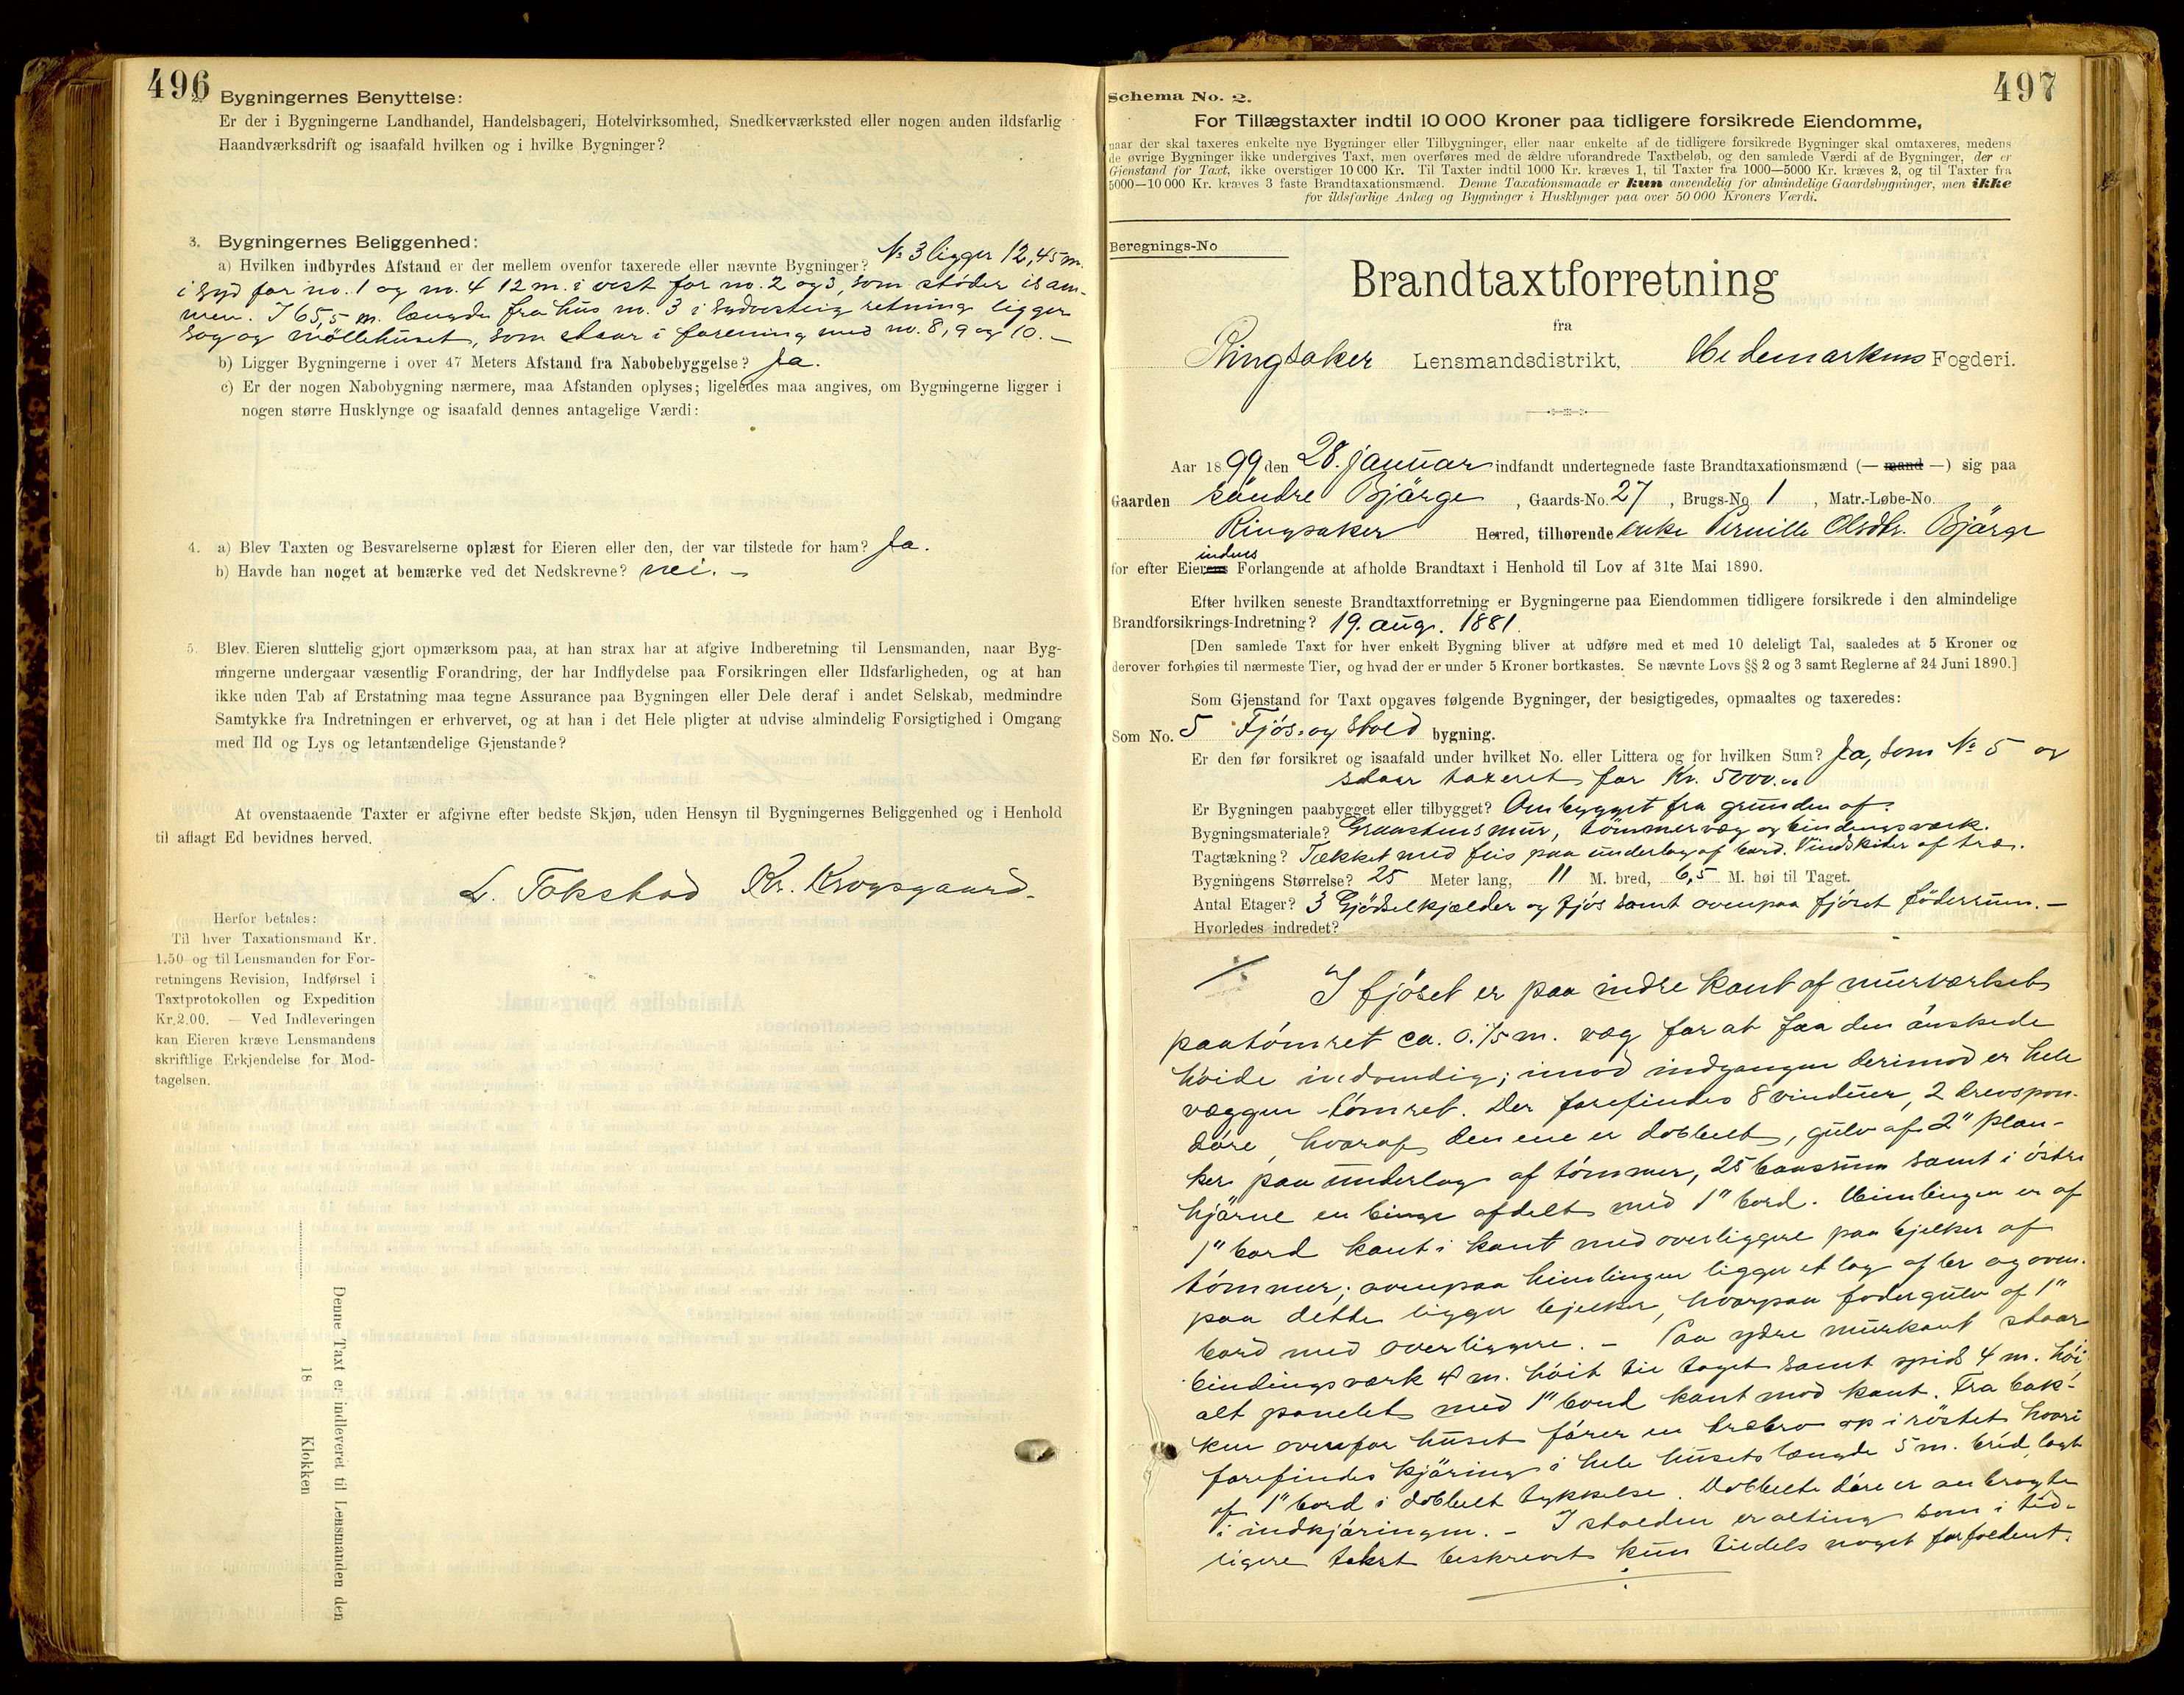 496
2. Bygningernes Benyttelse:
Er der i Bygningerne Landhandel, Handelsbageri, Hotelvirksomhed, Snedkerværksted eller nogen anden ildsfarlig
Haandværksdrift og isaafald hvilken og i hvilke Bygninger?
3. Bygningernes Beliggenhed:
a) Hvilken indbyrdes Afstand er der mellem ovenfor taxerede eller nævnte Bygninger? No 3 ligger 12,45 m.
i syd for no. 1 og no. 4 12 m. i vest for no. 2 og 3, som støder isam-
men. I 65,5 m. længde fra hus no. 3 i sydvestlig retning ligger
sag og møllehuset, som staar i forening med no. 8, 9 og 10. —
b) Ligger Bygningerne i over 47 Meters Afstand fra Nabobebyggelse? Ja.
c) Er der nogen Nabobygning nærmere, maa Afstanden oplyses; ligeledes maa angives, om Bygningerne ligger i
nogen større Husklynge og isaafald dennes antagelige Værdi:
4. a) Blev Taxten og Besvarelserne oplæst for Eieren eller den, der var tilstede for ham? Ja.
b) Havde han noget at bemærke ved det Nedskrevne? nei. —
5. Blev Eieren sluttelig gjort opmærksom paa, at han strax har at afgive Indberetning til Lensmanden, naar Byg-
ningerne undergaar væsentlig Forandring, der har Indflydelse paa Forsikringen eller Ildsfarligheden, og at han
ikke uden Tab af Erstatning maa tegne Assurance paa Bygningen eller Dele deraf i andet Selskab, medmindre
Samtykke fra Indretningen er erhvervet, og at han i det Hele pligter at udvise almindelig Forsigtighed i Omgang
med Ild og Lys og letantændelige Gjenstande?
At ovenstaaende Taxter er afgivne efter bedste Skjøn, uden Hensyn til Bygningernes Beliggenhed og i Henhold
til aflagt Ed bevidnes herved.
L. Tokstad Kr. Krogsgaard.
Herfor betales:
Til hver Taxationsmand Kr.
1.50 og til Lensmanden for For-
retningens Revision, Indførsel i
Taxtprotokollen og Expedition
Kr. 2.00. — Ved Indleveringen
kan Eieren kræve Lensmandens
skriftlige Erkjendelse for Mod-
tagelsen.
Denne Taxt er indleveret til Lensmanden den
18 Klokken
497
Schema No. 2.
For Tillægstaxter indtil 10 000 Kroner paa tidligere forsikrede Eiendomme,
naar der skal taxeres enkelte nye Bygninger eller Tilbygninger, eller naar enkelte af de tidligere forsikrede Bygninger skal omtaxeres, medens
de øvrige Bygninger ikke undergives Taxt, men overføres med de ældre uforandrede Taxtbeløb, og den samlede Værdi af de Bygninger, der er
Gjenstand for Taxt, ikke overstiger 10 000 Kr. Til Taxter indtil 1000 Kr. kræves 1, til Taxter fra 1000—5000 Kr. kræves 2, og til Taxter fra
5000—10 000 Kr. kræves 3 faste Brandtaxationsmænd. Denne Taxationsmaade er kun anvendelig for almindelige Gaardsbygninger, men ikke
for ildsfarlige Anlæg og Bygninger i Husklynger paa over 50 000 Kroners Værdi.
Beregnings-No
Brandtaxtforretning
fra
Ringsaker Lensmandsdistrikt, Hedemarkens Fogderi.
Aar 1899 den 28. januar indfandt undertegnede faste Brandtaxationsmænd (— mand —) sig paa
Gaarden søndre Bjørge, Gaards-No. 27, Brugs-No 1, Matr.-Løbe-No.
Ringsaker Herred, tilhørende enke Pernille Olsdtr. Bjørge
indens
for efter Eierens Forlangende at afholde Brandtaxt i Henhold til Lov af 31te Mai 1890.
Efter hvilken seneste Brandtaxtforretning er Bygningerne paa Eiendommen tidligere forsikrede i den almindelige
Brandforsikrings-Indretning? 19. aug. 1881.
[Den samlede Taxt for hver enkelt Bygning bliver at udføre med et med 10 deleligt Tal, saaledes at 5 Kroner og
derover forhøies til nærmeste Tier, og hvad der er under 5 Kroner bortkastes. Se nævnte Lovs §§ 2 og 3 samt Reglerne af 24 Juni 1890.]
Som Gjenstand for Taxt opgaves følgende Bygninger, der besigtigedes, opmaaltes og taxeredes:
Som No. 5 Fjøs- og stald bygning.
Er den før forsikret og isaafald under hvilket No. eller Littera og for hvilken Sum? Ja, som No 5 og
staar taxeret for Kr. 5000.00
Er Bygningen paabygget eller tilbygget? Ombygget fra grunden af.
Bygningsmateriale? Graastensmur, tømmervæg og bindingsværk.
Tagtækning? Tækket med flis paa underlag af bord. Vindskider af træ.
Bygningens Størrelse? 25 Meter lang, 11 M. bred, 6,5 M. høi til Taget.
Antal Etager? 3 Gjødselkjælder og fjøs samt ovenpaa fjøset föderrum. —
Hvorledes indredet?
I fjøset er paa indre kant af murværket
paatømret ca. 0.75 m. væg for at faa den ønskede
høide indvendig; imod indgangen derimod er hele
væggen tømret. Der forefindes 8 vinduer, 2 drevspon-
døre, hvoraf den ene er dobbelt, gulv af 2" plan-
ker paa underlag af tømmer, 25 baasrum samt i østre
hjørne en binge afdelt med 1" bord. Himlingen er af
1" bord kant i kant med overliggere paa bjelker af
tømmer; ovenpaa himlingen ligger et lag af ler og oven-
paa dette ligger bjelker, hvorpaa fodergulv af 1"
bord med overliggere. — Paa ydre murkant staar
bindingsværk 4 m. høit til taget samt spids 4 m. høi
alt panelet med 1" bord kant mod kant. Fra bak-
ken ovenfor huset fører en træbro op i røstet hvori
forefindes kjøring i hele husets længde 5 m. bred, lagt
af 1" bord i dobbelt tykkelse. Dobbelte døre er anbragte
i indkjøringen. — I stalden er alting som i tid-
ligere takst beskrevet kun tildels noget forfaldent.